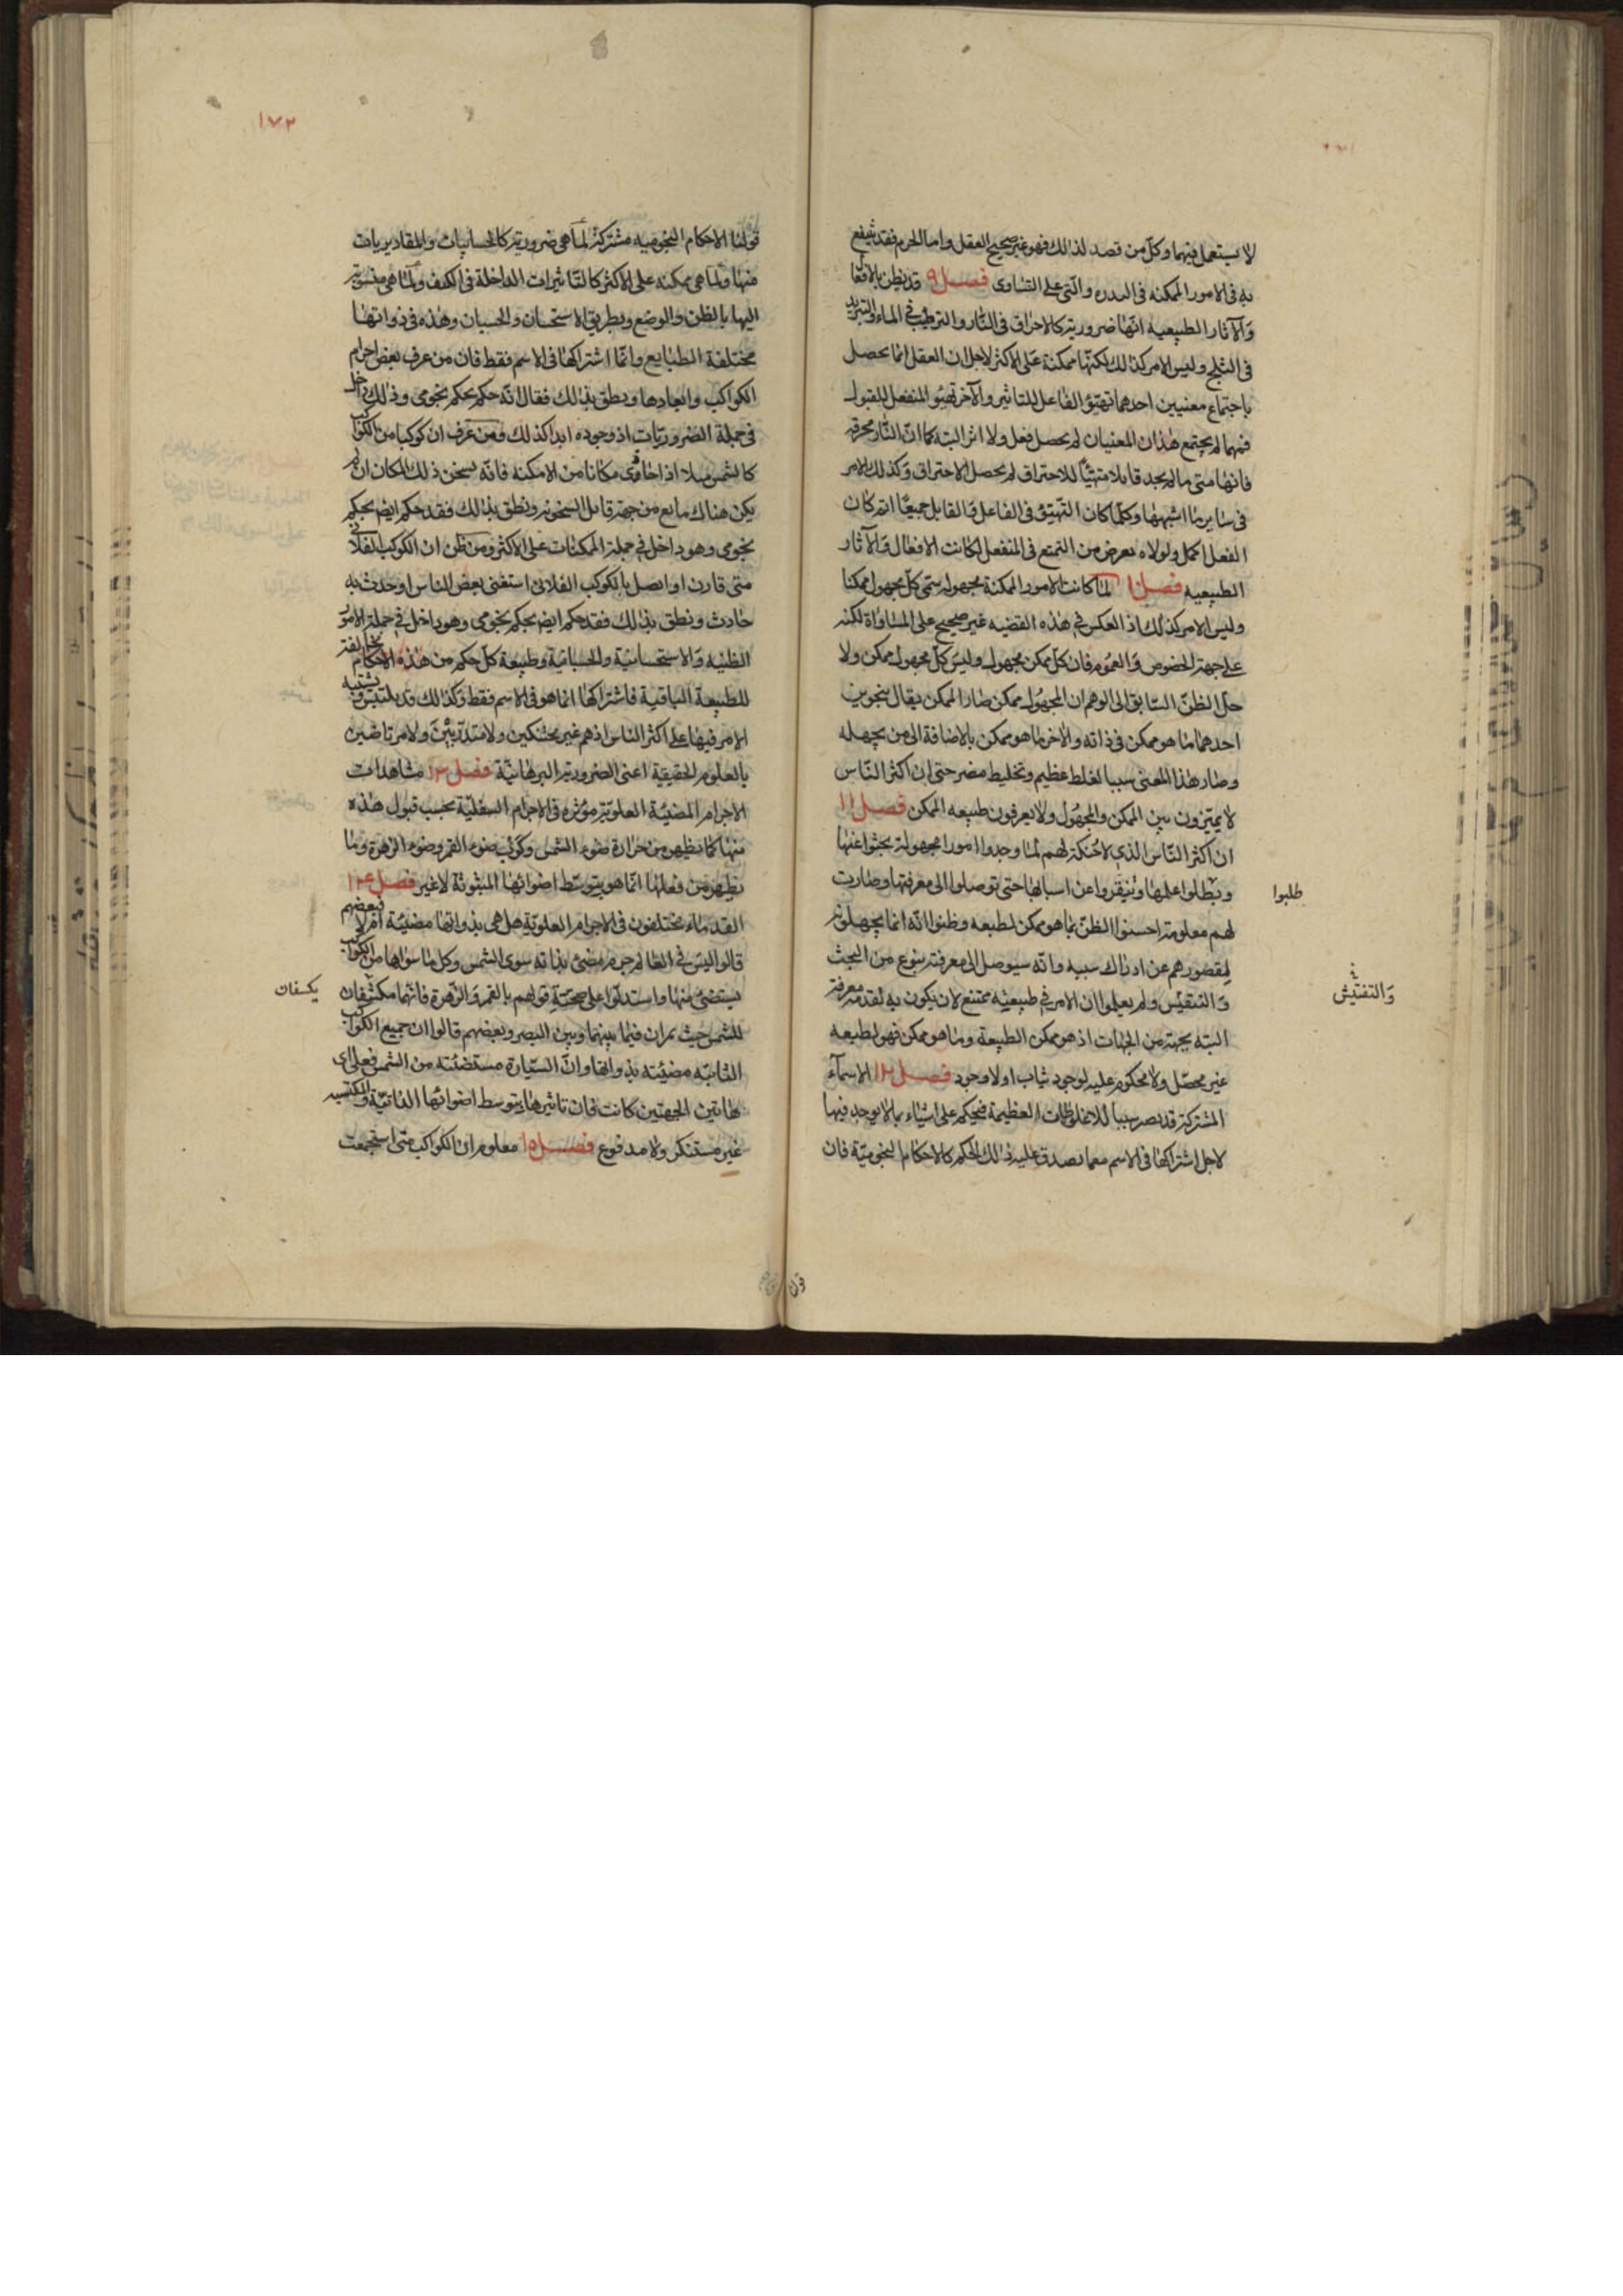 لا يستعمل فيهما وكل من قصد لذلك فهو غير صحيح العقل واما الحزم فقد ينفع
به فى الامور الممكنه فى الندره والتى على التساوى فصل ٩ قد يظن بالافعال
والآثار الطبيعيه انها ضرورية كالاحراق فى النار والترطيب فى الماء والتبريد
فى الثلج وليس الامر كذلك لكنها ممكنة على الاكثر لاجل ان الفعل انما يحصل
باجتماع معنيين احدهما تهيؤ الفاعل للتاثير والآخر تهيؤ المنفعل للقبول
فمهما لم يجتمع هذان المعنيان لم يحصل فعل ولا اثر البته كما ان النار محرقه
فانها متى ما لم يجد قابلا متهيئا للاحتراق لم يحصل الاحتراق وكذلك الامر
فى ساير ما اشبهها وكلما كان التهيؤ فى الفاعل والقابل جميعا اتم كان
الفعل اكمل ولولا ما يعرض من التمنع فى المنفعل لكانت الافعال والآثار
الطبيعيه فصل ١٠ لما كانت الامور الممكنة مجهوله سمى كل مجهول ممكنا
وليس الامر كذلك اذ العكس فى هذه القضيه غير صحيح على المساواة لكنه
على جهة الخصوص والعموم فان كل ممكن مجهول وليس كل مجهول ممكن ولا
جل الظن السابق الى الوهم ان المجهول ممكن صار الممكن يقال بنحوين
احدهما ما هو ممكن فى ذاته والآخر ما هو ممكن بالاضافة الى من يجهله
وصار هذا المعنى سببا لغلط عظيم وتخليط مضر حتى ان اكثر الناس
لا يميزون بين الممكن والمجهول ولا يعرفون طبيعه الممكن فصل ١١
ان اكثر الناس الذى لا حنكة لهم لما وجدوا امورا مجهولة بحثوا عنها
علمها ونيقروا عن اسبابها حتى توصلوا الى معرفتها وصارت
طلبوا
لهم معلومة احسنوا الظن بما هو ممكن لطبعه وظنوا انه انما يجهلونه
لقصورهم عن ادراك سببه وانه سيوصل الى معرفته بنوع من البحث
والتفتيش
ولم يعلموا ان الامر فى طبيعته ممتنع لان يكون به تقدمه معرفة
البته بجهة من الجهات اذ هو ممكن الطبيعة وما هو ممكن فهو لطبيعه
غير محصل ولا محكوم عليه لوجود ثبات او لا وجود فصل ١٢ الاسمآء
المشتركة قد تصير سببا للاغلوطات العظيمة فيحكم على اشياء بما لا يوجد فيها
لاجل اشتراكها فى الاسم معما يصدق عليه ذلك الحكم كالاحكام النجوميّة فان
قولنا
١٧٢
قولنا الاحكام النجوميه مشتركة لما هى ضرورية كالحسابيات والمقاديريات
منها ولما هى ممكنه على الاكثر كالتاثيرات الداخلة فى الكيف ولما هى منسوبة
اليها بالظن والوضع وبطريق الاستحسان والحسبان وهذه فى ذواتها
مختلفة الطبايع وانما اشتراكها فى الاسم فقط فان من عرف بعض اجرام
الكواكب وابعادها ونطق بذلك فقال انه حكم بحكم نجومى وذلك داخل
فى جملة الضروريات اذ وجوده ابدا كذلك فمن عرف ان كوكبا من الكواكب
كالشمس مثلا اذا حاذى مكانا من الامكنه فانه يسخن ذلك المكان ان لم
يكن هناك مانع من جهة قابل السخونة ونطق بذلك فقد حكم ايضا بحكم
نجومى وهو داخل فى جملة الممكنات على الاكثر ومن ظن ان الكوكب الفلانى
متى قارن او اتصل بالكوكب الفلانى استغنى بعض الناس او حدث به
حادث ونطق بذلك فقد حكم ايضا بحكم نجومى وهو داخل فى جملة الامور
الظنيه والاستحسانيّة والحسبانيّة وطبيعة كل حكم من هذه الاحكام مخالفة
للطبيعة الباقية فاشتراكها انما هو فى الاسم فقط وكذلك قد يلتبس ويشتبه
الامر فيها على اكثر الناس اذ هم غير محتنكين ولا متدربين ولا مرتاضين
بالعلوم الحقيقية اعنى الضروريه البرهانيّة فصل ١٣ مشاهدات
الاجرام المضيئة العلويّة مؤثره فى الاجرام السفليّة بحسب قبول هذه
منها كما يظهر من حرارة ضوء الشمس ضوء القمر وضوء الزهرة وما
يظهر من فعلها انما هو بتوسط اضوائها المبثوثة لا غير فصل ١٤
القدماء مختلفون فى الاجرام العلويّة هل هى بذواتها مضيئة ام لا فبعضهم
قالوا ليس فى العالم جرم مضئ بذاته سوى الشمس وكل ما سواها من الكواكب
يستضئ منها واستدلوا على صحة قولهم بالقمر والزهرة فانهما مكشفان
يكسفان
للشمس حيث يمران فيما بينهما وبين البصر وبعضهم قالوا ان جميع الكواكب
الثابته مضيئه بذواتها وان السيّارة مستضئته من الشمس فعلى اى
هاتين الجهتين كانت فان تاثيرها بتوسط اضوائها الذاتيّة والمكتسبه
غير مستنكر ولا مدفوع فصل ١٥ معلوم ان الكواكب متى استجمعت